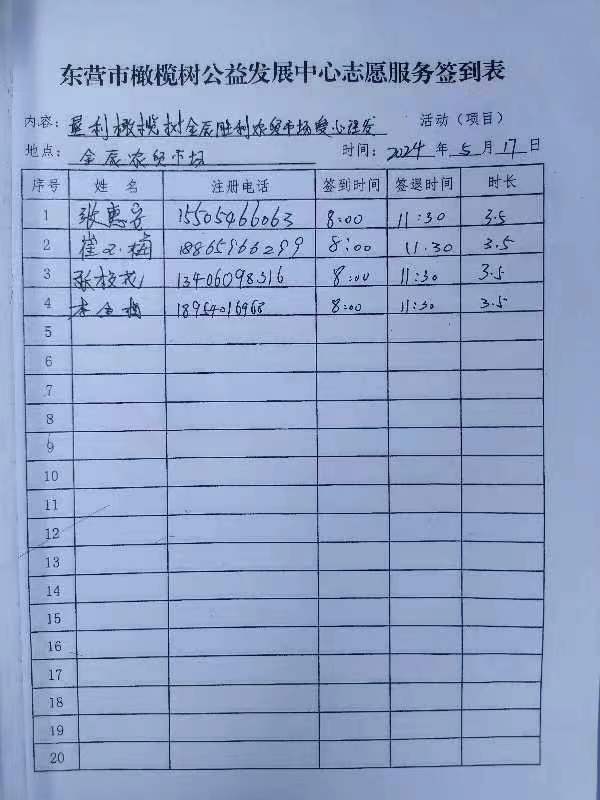 东营市橄榄树公益发展中心志愿服务签到表
内容：垦利橄榄树全辰胜利农贸市场爱心理发 活动（项目）
地点：全辰农贸市场 时间：2024年5月17日
序号 姓 名 注册电话 签到时间 签退时间 时长
1 张惠 15505466063 8:00 11:30 3.5
2 崔 梅 18865966299 8:00 11.30 3.5
3 张 13406098316 8:00 11:30 3.5
4 18954016968 8:00 11:30 3.5
5
6
7
8
9
10
11
12
13
14
15
16
17
18
19
20